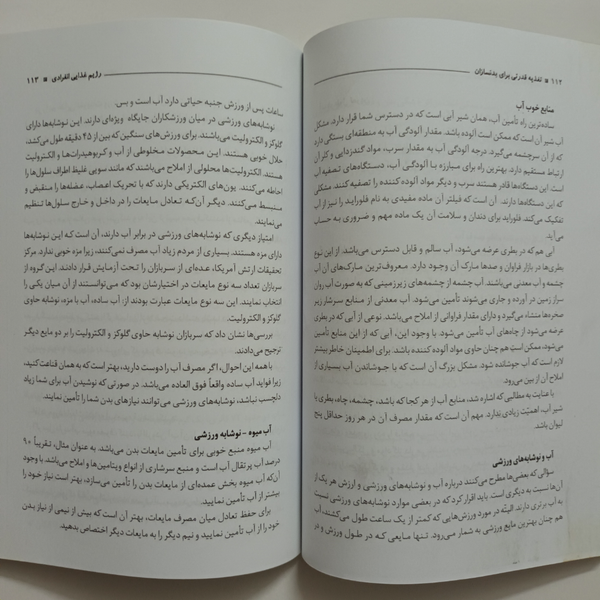 ۱۱۲ ■ تغذیه قدرتی برای بدنسازان
منابع خوب آب
ساده‌ترین راه تأمین آب، همان شیر آبی است که در دسترس شما قرار دارد. مشکل
آب شیر آن است که ممکن است آلوده باشد. مقدار آلودگی آب به منطقه‌ای بستگی دارد
که از آن سرچشمه می‌گیرد. درجه آلودگی آب به مقدار سرب، مواد گندزدایی و کلر آن
ارتباط مستقیم دارد. بهترین راه برای مبارزه با آلودگی آب، دستگاه‌های تصفیه آب
است. این دستگاه‌ها قادر هستند سرب و دیگر مواد آلوده کننده را تصفیه کنند. مشکلی
که این دستگاه‌ها دارند، آن است که فیلتر آن ماده مفیدی به نام فلوراید را نیز از آب
تفکیک می‌کند. فلوراید برای دندان و سلامت آن یک ماده مهم و ضروری به حساب
می‌آید.
آبی هم که در بطری عرضه می‌شود، آب سالم و قابل دسترس می‌باشد. از این نوع
بطری‌ها در بازار فراوان و صدها مارک آن وجود دارد. معروف‌ترین مارک‌های آن آب
چشمه و آب معدنی می‌باشد. آب چشمه از چشمه‌های زیرزمینی که به صورت آب روان
سراز زمین در آورده و جاری می‌شوند تأمین می‌شود. آب معدنی از منابع سرشار زیر
صخره‌ها منشاء می‌گیرد و دارای مقدار فراوانی از املاح می‌باشد. نوعی از آبی که در بطری
عرضه می‌شود از چاه‌های آب تأمین می‌شود. با وجود این، آبی که از این منابع تأمین
می‌شود، ممکن است هم چنان حاوی مواد آلوده کننده باشد. برای اطمینان خاطر بیشتر
لازم است که آب جوشانده شود. مشکل بزرگ آن است که با جوشاندن آب بسیاری از
املاح آن از بین می‌رود.
با عنایت به مطالبی که اشاره شد، منابع آب از هر کجا که باشد، چشمه، چاه، بطری یا
شیر آب، اهمیّت زیادی ندارد. مهم آن است که مقدار مصرف آن در هر روز حداقل پنج
لیوان باشد.
آب و نوشابه‌های ورزشی
سؤالی که بعضی‌ها مطرح می‌کنند درباره آب و نوشابه‌های ورزشی و ارزش هر یک از
آن‌ها نسبت به دیگری است. باید اقرار کرد که در بعضی موارد نوشابه‌های ورزشی نسبت
به آب برتری دارند. البتّه در مورد ورزش‌هایی که کمتر از یک ساعت طول می‌کشند، آب
هم چنان بهترین مایع ورزشی به شمار می‌رود. تنها مایعی که در طول ورزش و در
رژیم غذایی انفرادی ■ ۱۱۳
ساعات پس از ورزش جنبه حیاتی دارد آب است و بس.
نوشابه‌های ورزشی در میان ورزشکاران جایگاه ویژه‌ای دارند. این نوشابه‌ها دارای
گلوکز و الکترولیت می‌باشند. برای ورزش‌های سنگین که بیش از ۴۵ دقیقه طول می‌کشد،
حلال خوبی هستند. این محصولات مخلوطی از آب و کربوهیدرات‌ها و الکترولیت
هستند. الکترولیت‌ها محلولی از املاح می‌باشند که مانند سوپی غلیظ اطراف سلول‌ها را
احاطه می‌کنند. یون‌های الکتریکی دارند که با تحریک اعصاب، عضله‌ها را منقبض و
منبسط می‌کنند. دیگر آن‌که تعادل مایعات را در داخل و خارج سلول‌ها تنظیم
می‌نمایند.
امتیاز دیگری که نوشابه‌های ورزشی در برابر آب دارند، آن است که این نوشابه‌ها
دارای مزه هستند. بسیاری از مردم زیاد آب مصرف نمی‌کنند، زیرا مزه خوبی ندارد. مرکز
تحقیقات ارتش آمریکا، عده‌ای از سربازان را تحت آزمایش قرار دادند. این گروه از
سربازان تعداد سه نوع مایعات در اختیارشان بود که می‌توانستند از آن میان یکی را
انتخاب نمایند. این سه نوع مایعات عبارت بودند از: آب ساده، آب با مزه، نوشابه حاوی
گلوکز و الکترولیت.
بررسی‌ها نشان داد که سربازان نوشابه حاوی گلوکز و الکترولیت را بر دو مایع دیگر
ترجیح می‌دادند.
با همه این احوال، اگر مصرف آب را دوست دارید، بهتر است که به همان قناعت کنید،
زیرا فواید آب ساده واقعاً فوق العاده می‌باشد. در صورتی که نوشیدن آب برای شما زیاد
دلچسب نباشد، نوشابه‌های ورزشی می‌توانند نیازهای بدن شما را تأمین نمایند.
آب میوه - نوشابه ورزشی
آب میوه منبع خوبی برای تأمین مایعات بدن می‌باشد. به عنوان مثال، تقریباً ۹۰
درصد آب پرتقال آب است و منبع سرشاری از انواع ویتامین‌ها و املاح می‌باشد. با وجود
آن‌که آب میوه بخش عمده‌ای از مایعات بدن را تأمین می‌سازد، بهتر است نیاز خود را
بیشتر از آب تأمین نمایید.
برای حفظ تعادل میان مصرف مایعات، بهتر آن است که بیش از نیمی از نیاز بدن
خود را از آب تأمین نمایید و نیم دیگر را به مایعات دیگر اختصاص بدهید.